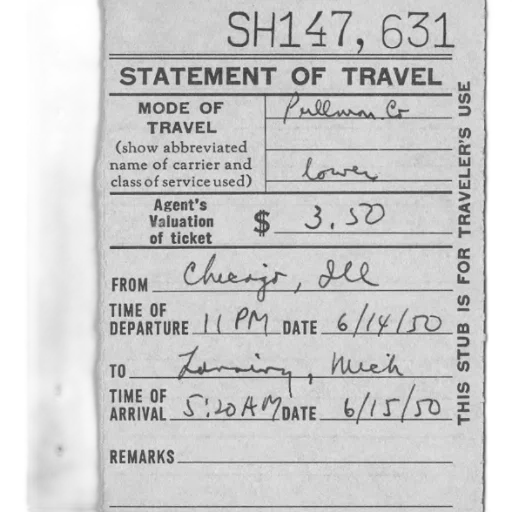 SH147,631
STATEMENT OF TRAVEL
MODE OF
TRAVEL
(show abbreviated
name of carrier and
class of service used)
Pullman Co
lower
Agent's
Valuation
of ticket
$ 3.50
FROM Chicago, Ill
TIME OF
DEPARTURE 11 PM DATE 6/14/50
TO Lansing, Mich
TIME OF
ARRIVAL 5:20 AM DATE 6/15/50
REMARKS
THIS STUB IS FOR TRAVELER'S USE